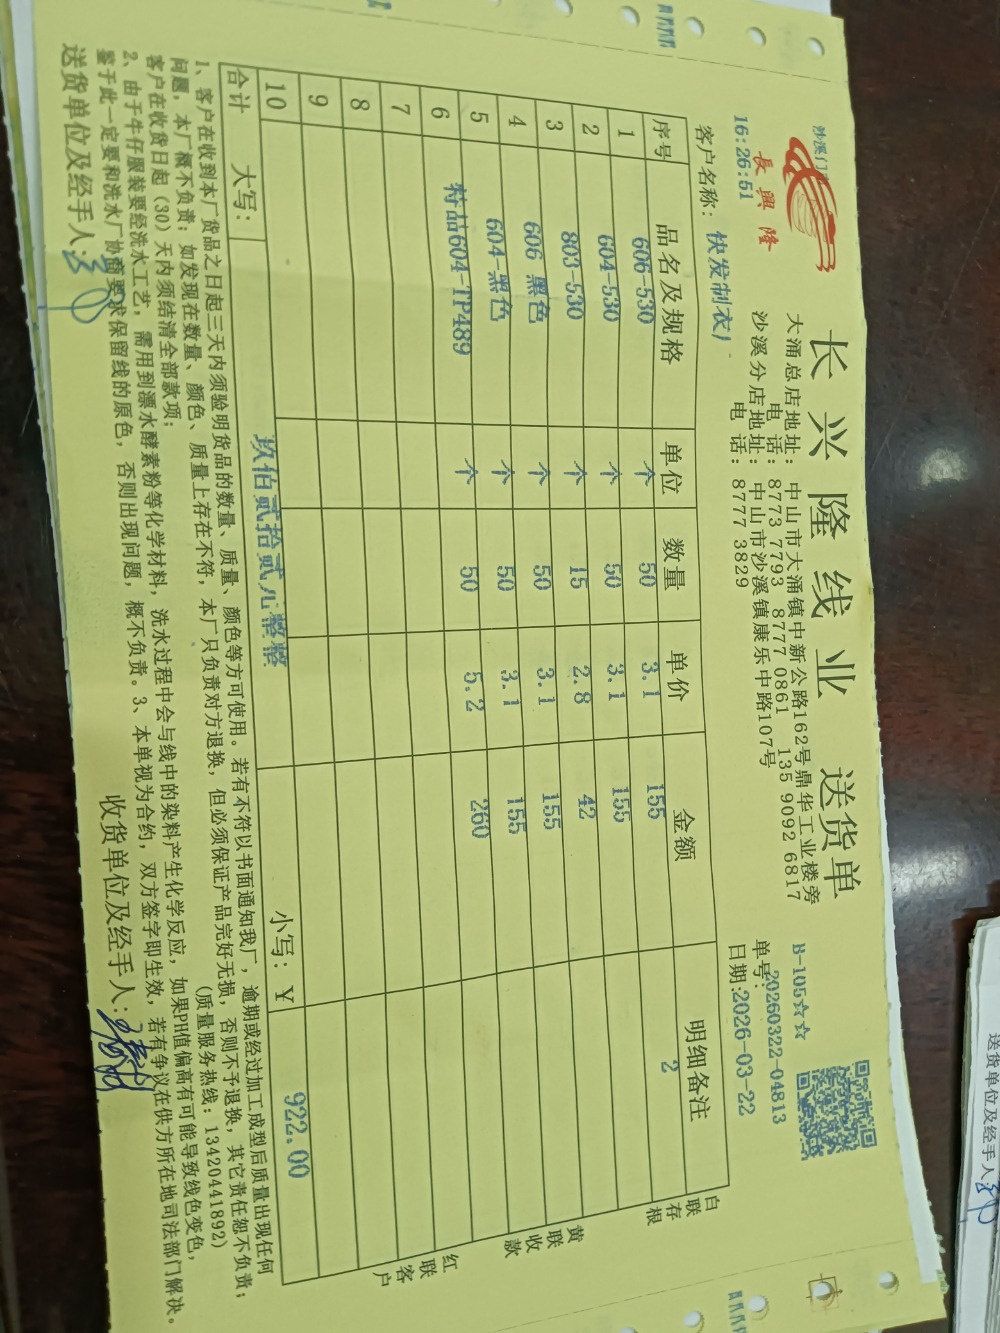 長興隆
长兴隆线业 送货单
大涌总店地址: 中山市大涌镇中新公路162号鼎华工业楼旁
电 话: 8773 7793 8777 0861 135 9092 6817
沙溪分店地址: 中山市沙溪镇康乐中路107号
电 话: 8777 3829
沙溪门
16:26:51
B-105☆☆
单号: 20260322-04813
客户名称: 快发制衣厂
日期:2026-03-22
序号 品名及规格 单位 数量 单价 金额 明细备注
1 606-530 个 50 3.1 155 2
2 604-530 个 50 3.1 155
3 803-530 个 15 2.8 42
4 606 黑色 个 50 3.1 155
5 604-黑色 个 50 3.1 155
6 特品604-TP489 个 50 5.2 260
7
8
9
10
合计 大写: 玖佰贰拾贰元整整 小写: ¥ 922.00
白联存根
黄联收款
红联客户
1、客户在收到本厂货品之日起三天内须验明货品的数量、质量、颜色等方可使用。若有不符以书面通知我厂，逾期或经过加工成型后质量出现任何
问题，本厂概不负责；如发现在数量、颜色、质量上存在不符，本厂只负责对方退换，但必须保证产品完好无损，否则不予退换，其它责任恕不负责；
客户在收货日起（30）天内须结清全部款项； (质量服务热线：13420441892)
2、由于牛仔服装要经洗水工艺，需用到漂水酵素粉等化学材料，洗水过程中会与线中的染料产生化学反应，如果PH值偏高有可能导致线色变色，
鉴于此一定要和洗水厂协商要求保留线的原色，否则出现问题，概不负责。3、本单视为合约，双方签字即生效，若有争议在供方所在地司法部门解决。
送货单位及经手人: 收货单位及经手人:
送货单位及经手人